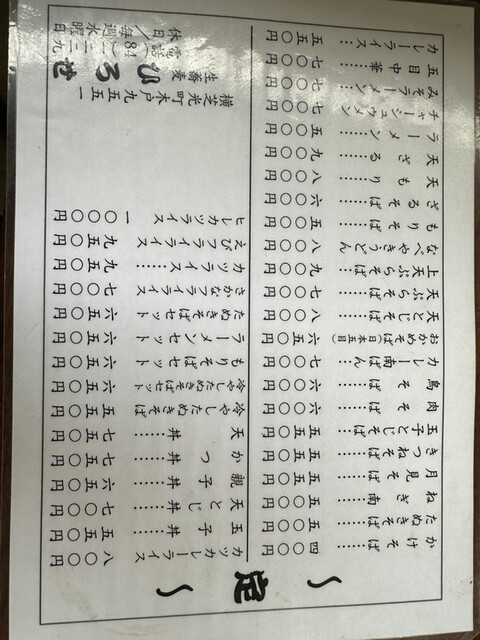 〜定〜
かけそば……四〇〇円
たぬきそば……五〇〇円
ねぎ南……五五〇円
月見そば……五五〇円
きつねそば……五五〇円
玉子とじそば……五五〇円
肉そば……六〇〇円
鳥そば……六〇〇円
カレー南ばん……七〇〇円
おかめそば(日本五目)六五〇円
天とじそば……八〇〇円
天ぷらそば……七〇〇円
上天ぷらそば……九〇〇円
なべやきうどん 八〇〇円
もりそば……五〇〇円
ざるそば……六〇〇円
天もり……八〇〇円
天ざる……九〇〇円
ラーメン……五〇〇円
チャーシュウメン 七〇〇円
みそラーメン……七〇〇円
五目中華……七〇〇円
カレーライス…五五〇円
カツカレーライス 八〇〇円
玉子丼……五五〇円
天とじ丼……七〇〇円
親子丼……六五〇円
かつ丼……七五〇円
天丼……七五〇円
冷やしたぬきそば 五五〇円
冷やしたぬきそばセット 六五〇円
もりそばセット 六〇〇円
ラーメンセット 六五〇円
たぬきそばセット 六五〇円
さかなフライライス 七〇〇円
カツライス……九五〇円
えびフライライス 九五〇円
ヒレカツライス 一〇〇〇円
横芝光町木戸九五五一
生蕎麦 ひろせ
電話(84)二二二九
休日/毎週水曜日